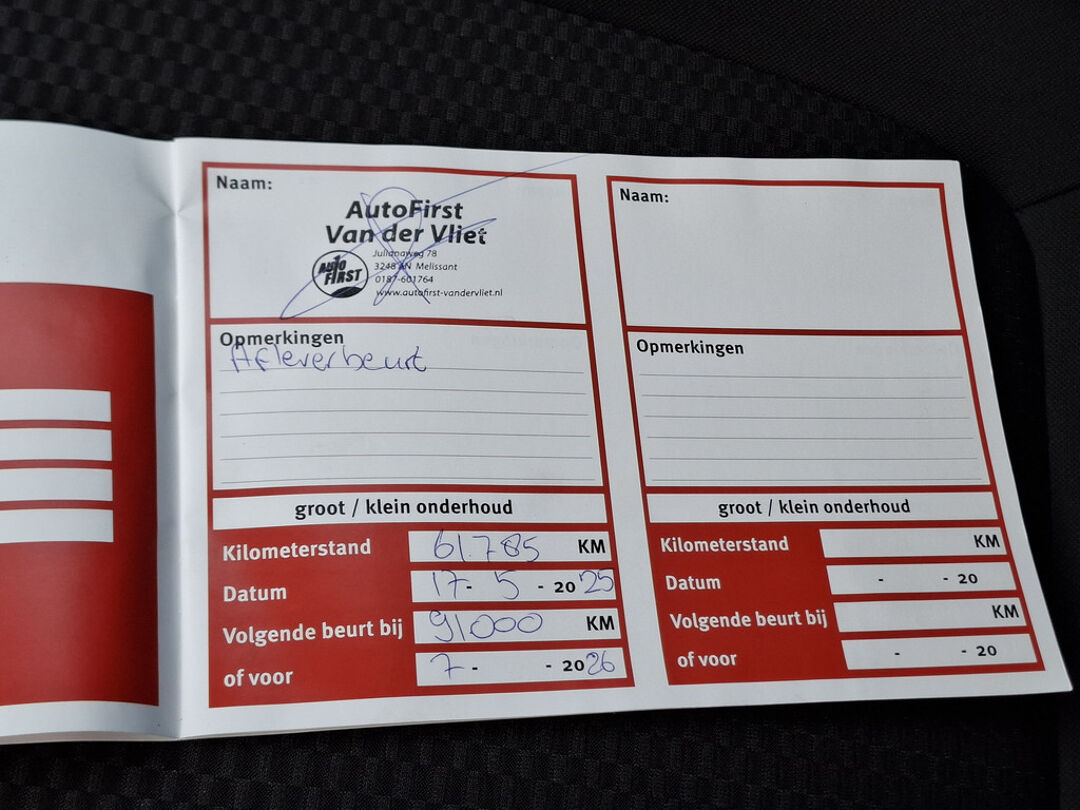 Naam:
AutoFirst
Van der Vliet
Julianaweg 78
3248 AN Melissant
0187-601764
www.autofirst-vandervliet.nl
AUTO FIRST
Opmerkingen
Afleverbeurt
groot / klein onderhoud
Kilometerstand 61.785 KM
Datum 17- 5 - 20 25
Volgende beurt bij 91.000 KM
of voor 7 - - 20 26
Naam:
Opmerkingen
groot / klein onderhoud
Kilometerstand KM
Datum - - 20
Volgende beurt bij KM
of voor - - 20